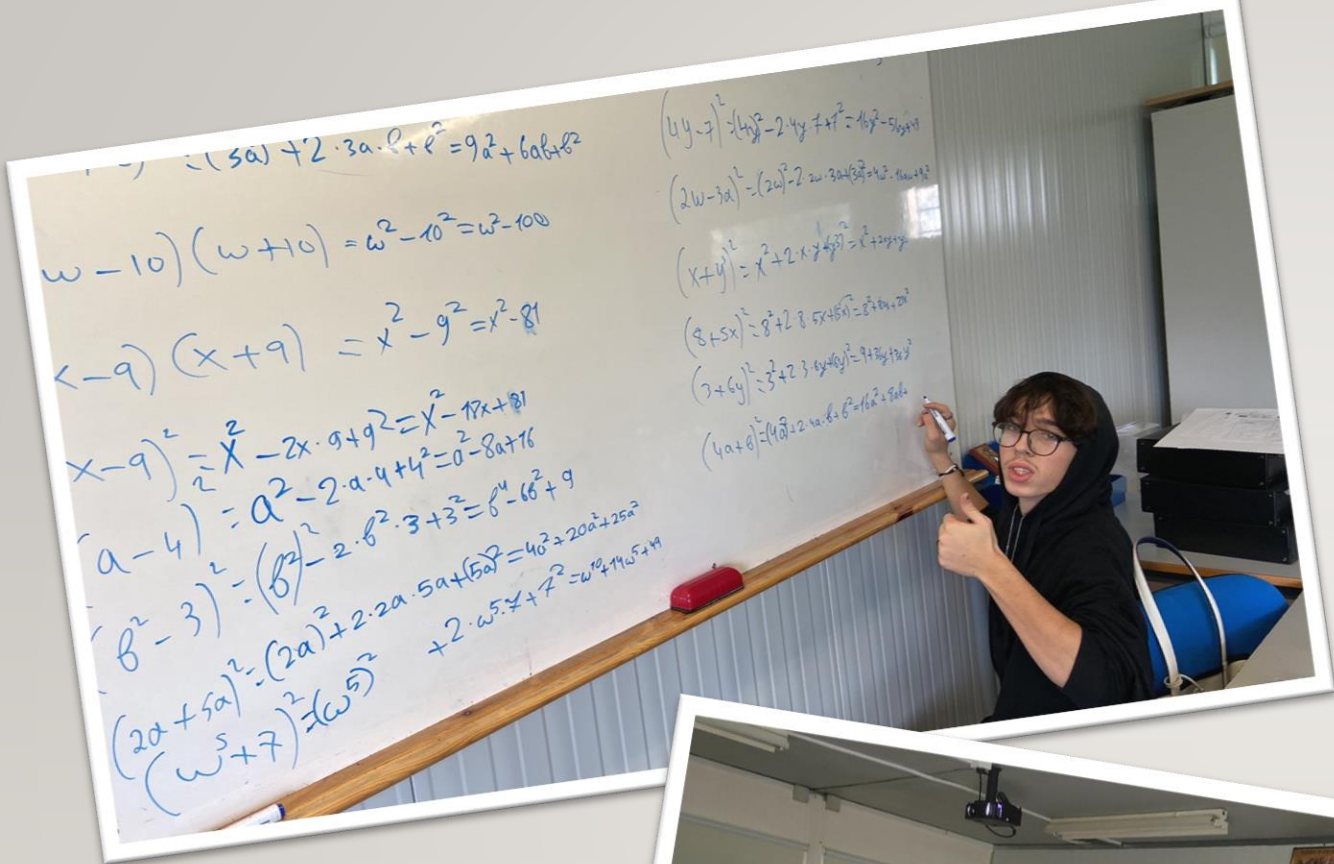 = (3a) + 2·3a·b + b² = 9a² + 6ab + b²
w - 10) (w + 10) = w² - 10² = w² - 100
x - 9) (x + 9) = x² - 9² = x² - 81
x - 9)² = x² - 2x·9 + 9² = x² - 18x + 81
(a - 4)² = a² - 2·a·4 + 4² = a² - 8a + 16
(b² - 3)² = (b²)² - 2·b²·3 + 3² = b⁴ - 6b² + 9
(2a + 5a)² = (2a)² + 2·2a·5a + (5a)² = 4a² + 20a² + 25a²
(w⁵ + 7)² = (w⁵)² + 2·w⁵·7 + 7² = w¹⁰ + 14w⁵ + 49
(4y - 7)² = (4y)² - 2·4y·7 + 7² = 16y² - 56y + 49
(2w - 3a)² = (2w)² - 2·2w·3a + (3a)² = 4w² - + 9a²
= x² + 2·x·
(8 + 5x)² = 8² + 2·8·5x + (5x)² = 8² +
(3 + 6y)² = 3² + 2·3·6y + (6y)² = 9 + 36y + 36y²
(4a + b)² = (4a)² + 2·4a·b + b² = 16a² + 8ab +